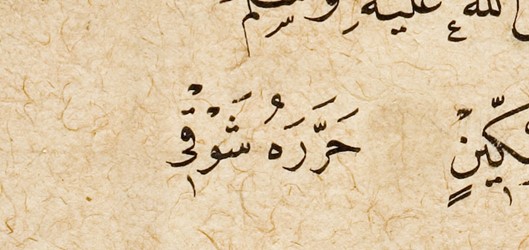 الله عليه وسلم
حَرَّرَهُ شَوْقِى